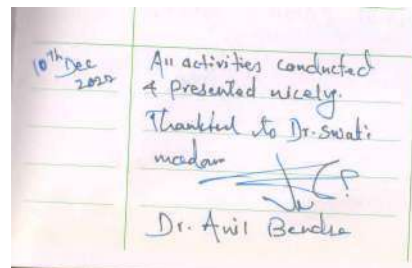 10th Dec
2020
All activities conducted
& Presented nicely.
Thankful to Dr. Swati
madam
Dr. Anil